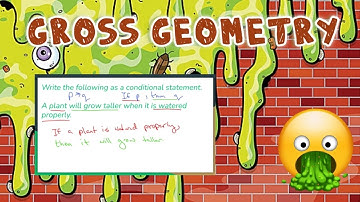 GROSS GEOMETRY
Write the following as a conditional statement.
P→q If p, then q
A plant will grow taller when it is watered
properly.
If a plant is watered properly,
then it will grow taller